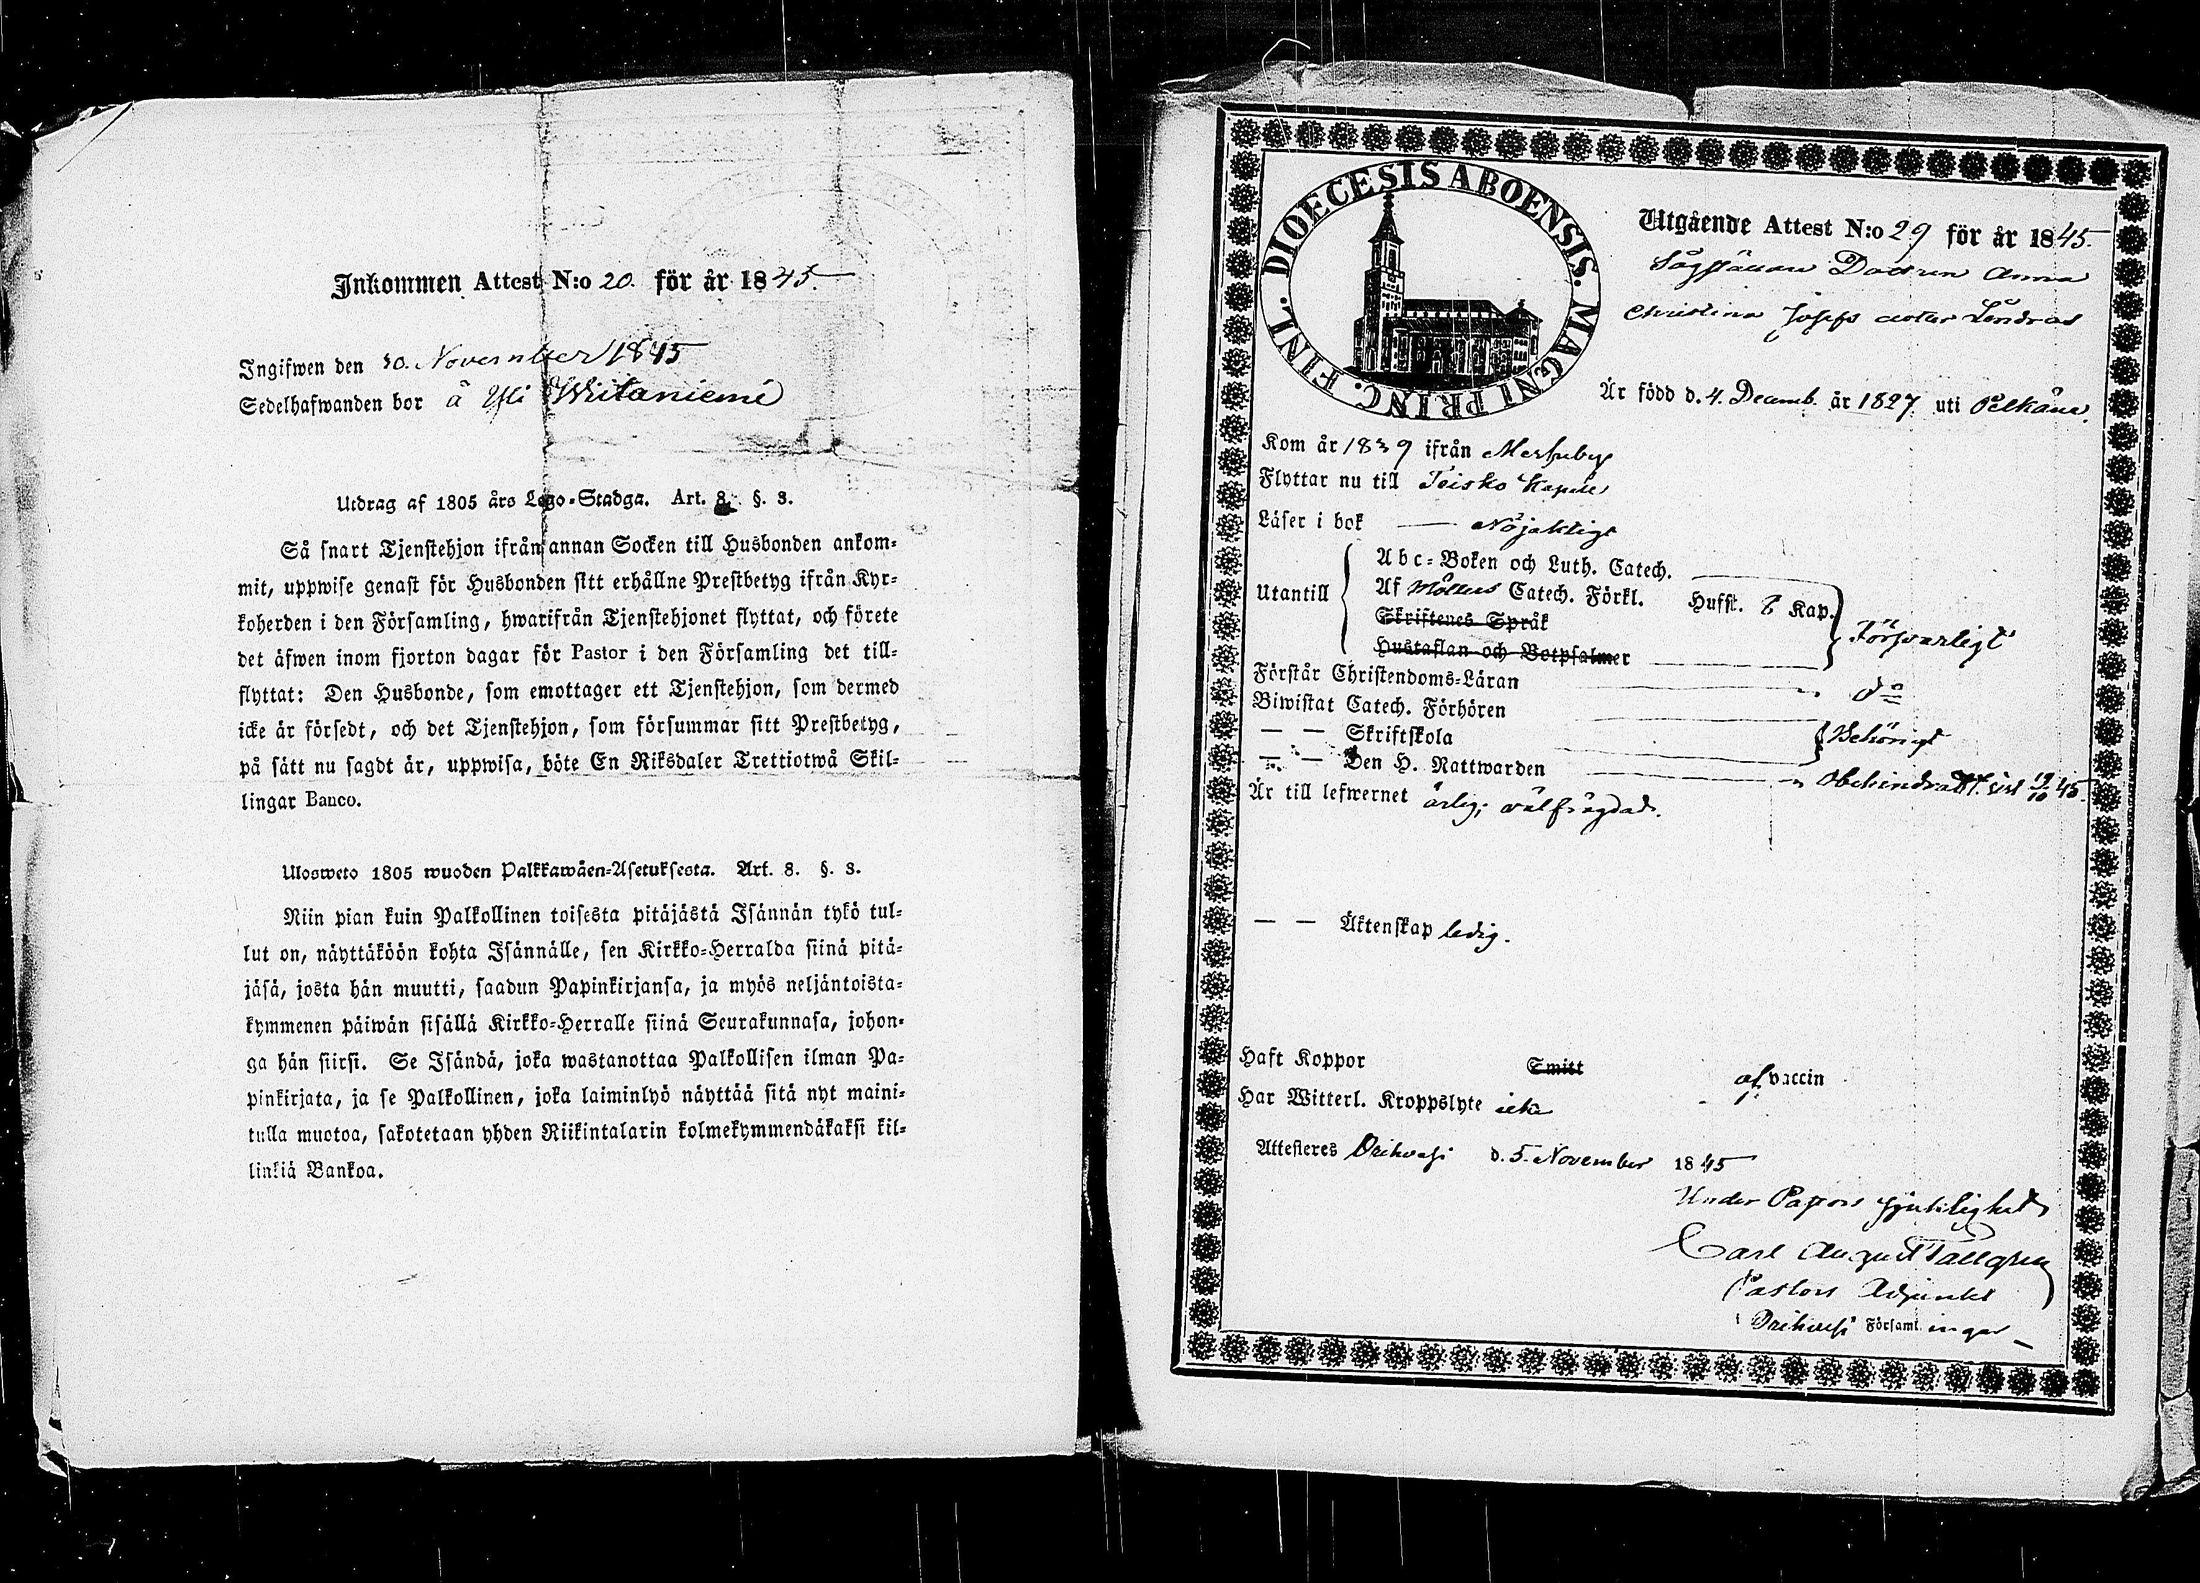 Inkommen Attest N:o 20. för år 1845.
Ingifwen den 30. November 1845
Sedelhafwanden bor å Yli Wiitaniemi
Utdrag af 1805 års Lego-Stadga. Art. 8. §. 3.
Så snart Tjenstehjon ifrån annan Socken till Husbonden ankom-
mit, uppwise genast för Husbonden sitt erhållne Prestbetyg ifrån Kyr-
koherden i den Församling, hwarifrån Tjenstehjonet flyttat, och förete
det äfwen inom fjorton dagar för Pastor i den Församling det till-
flyttat: Den Husbonde, som emottager ett Tjenstehjon, som dermed
icke är försedt, och det Tjenstehjon, som försummar sitt Prestbetyg,
på sätt nu sagdt är, uppwisa, böte En Riksdaler Trettiotwå Skil-
lingar Banco.
Ulosweto 1805 wuoden Palkkawäen-Asetuksesta. Art. 8. §. 3.
Niin pian kuin Palkollinen toisesta pitäjästä Isännän tykö tul-
lut on, näyttäköön kohta Isännälle, sen Kirkko-Herralda siinä pitä-
jäsä, josta hän muutti, saadun Papinkirjansa, ja myös neljäntoista-
kymmenen päiwän sisällä Kirkko-Herralle siinä Seurakunnasa, johon-
ga hän siirsi. Se Isändä, joka wastanottaa Palkollisen ilman Pa-
pinkirjata, ja se Palkollinen, joka laiminlyö näyttää sitä nyt maini-
tulla muotoa, sakotetaan yhden Riikintalarin kolmekymmendäkaksi kil-
linkiä Bankoa.
DIOECESIS ABOENSIS. MAGNI PRINC. FINL.
Utgående Attest N:o 29 för år 1845.
Dottren Anna
Christina Josefs doter
Är född d. 4. Decemb. år 1827 uti Pelkäne.
Kom år 1839 ifrån Messuby
Flyttar nu till Teisko Kapell
Läser i bok — Nöjaktigt
Utantill
Abc-Boken och Luth. Catech.
Af Möllers Catech. Förkl. Husst. 8 Kap.
Skriftenes Språk
Hustaflan och Botpsalmer
Försvarligt
Förstår Christendoms-Läran — do
Biwistat Catech. Förhören
— — Skriftskola
Behörigt
— — Den H. Nattwarden — Obehindrad sist 19/10 45.
Är till lefwernet ärlig, välfrägdad.
— — Äktenskap ledig.
Haft Koppor Smitt af vaccin
Har Witterl. Kroppslyte icke
Attesteres Orihvesi d. 5. November 1845
Under Pastors
Carl August Tallgren
Pastors Adjunkt
Orihvesi Församlingar